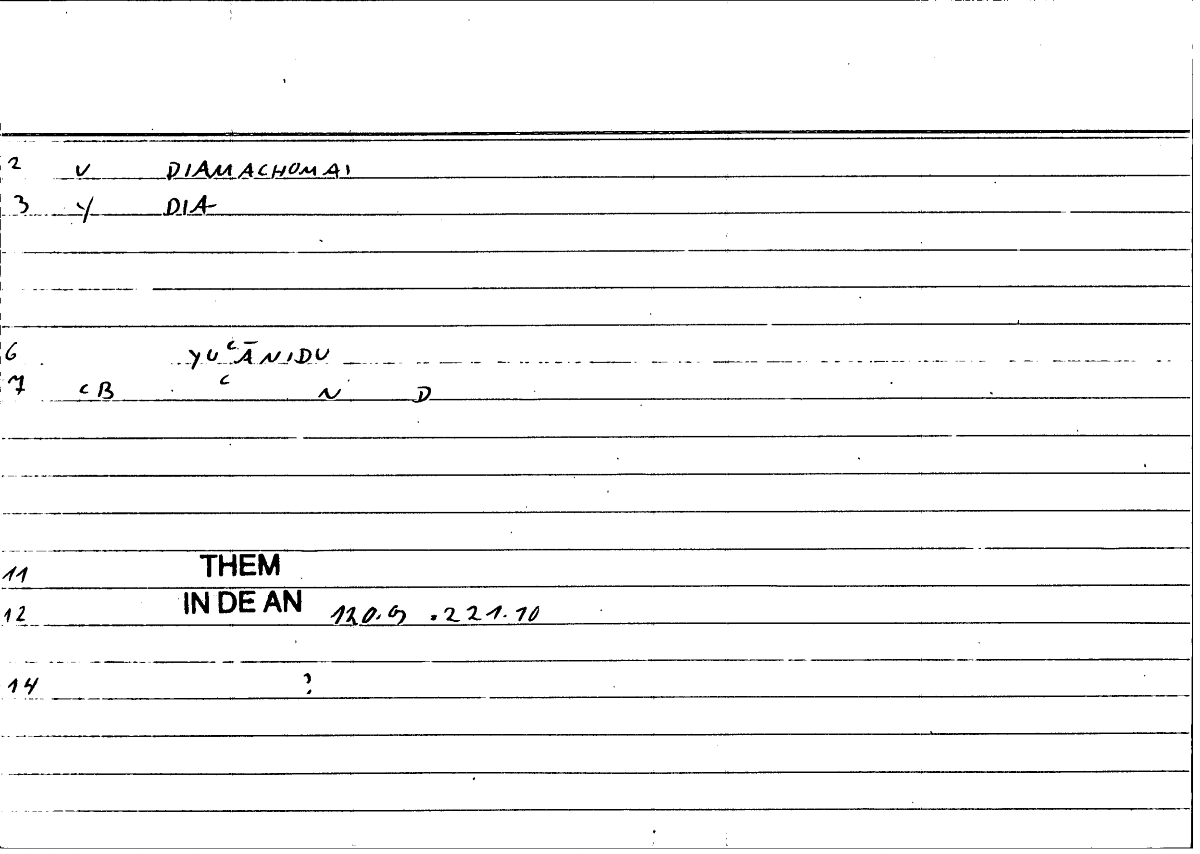 2 V DIAMACHOMAI
3 Y DIA
6 YUᶜĀNIDU
7 CB C N D
11 THEM
12 IN DE AN 120.9 .221.10
14 ?